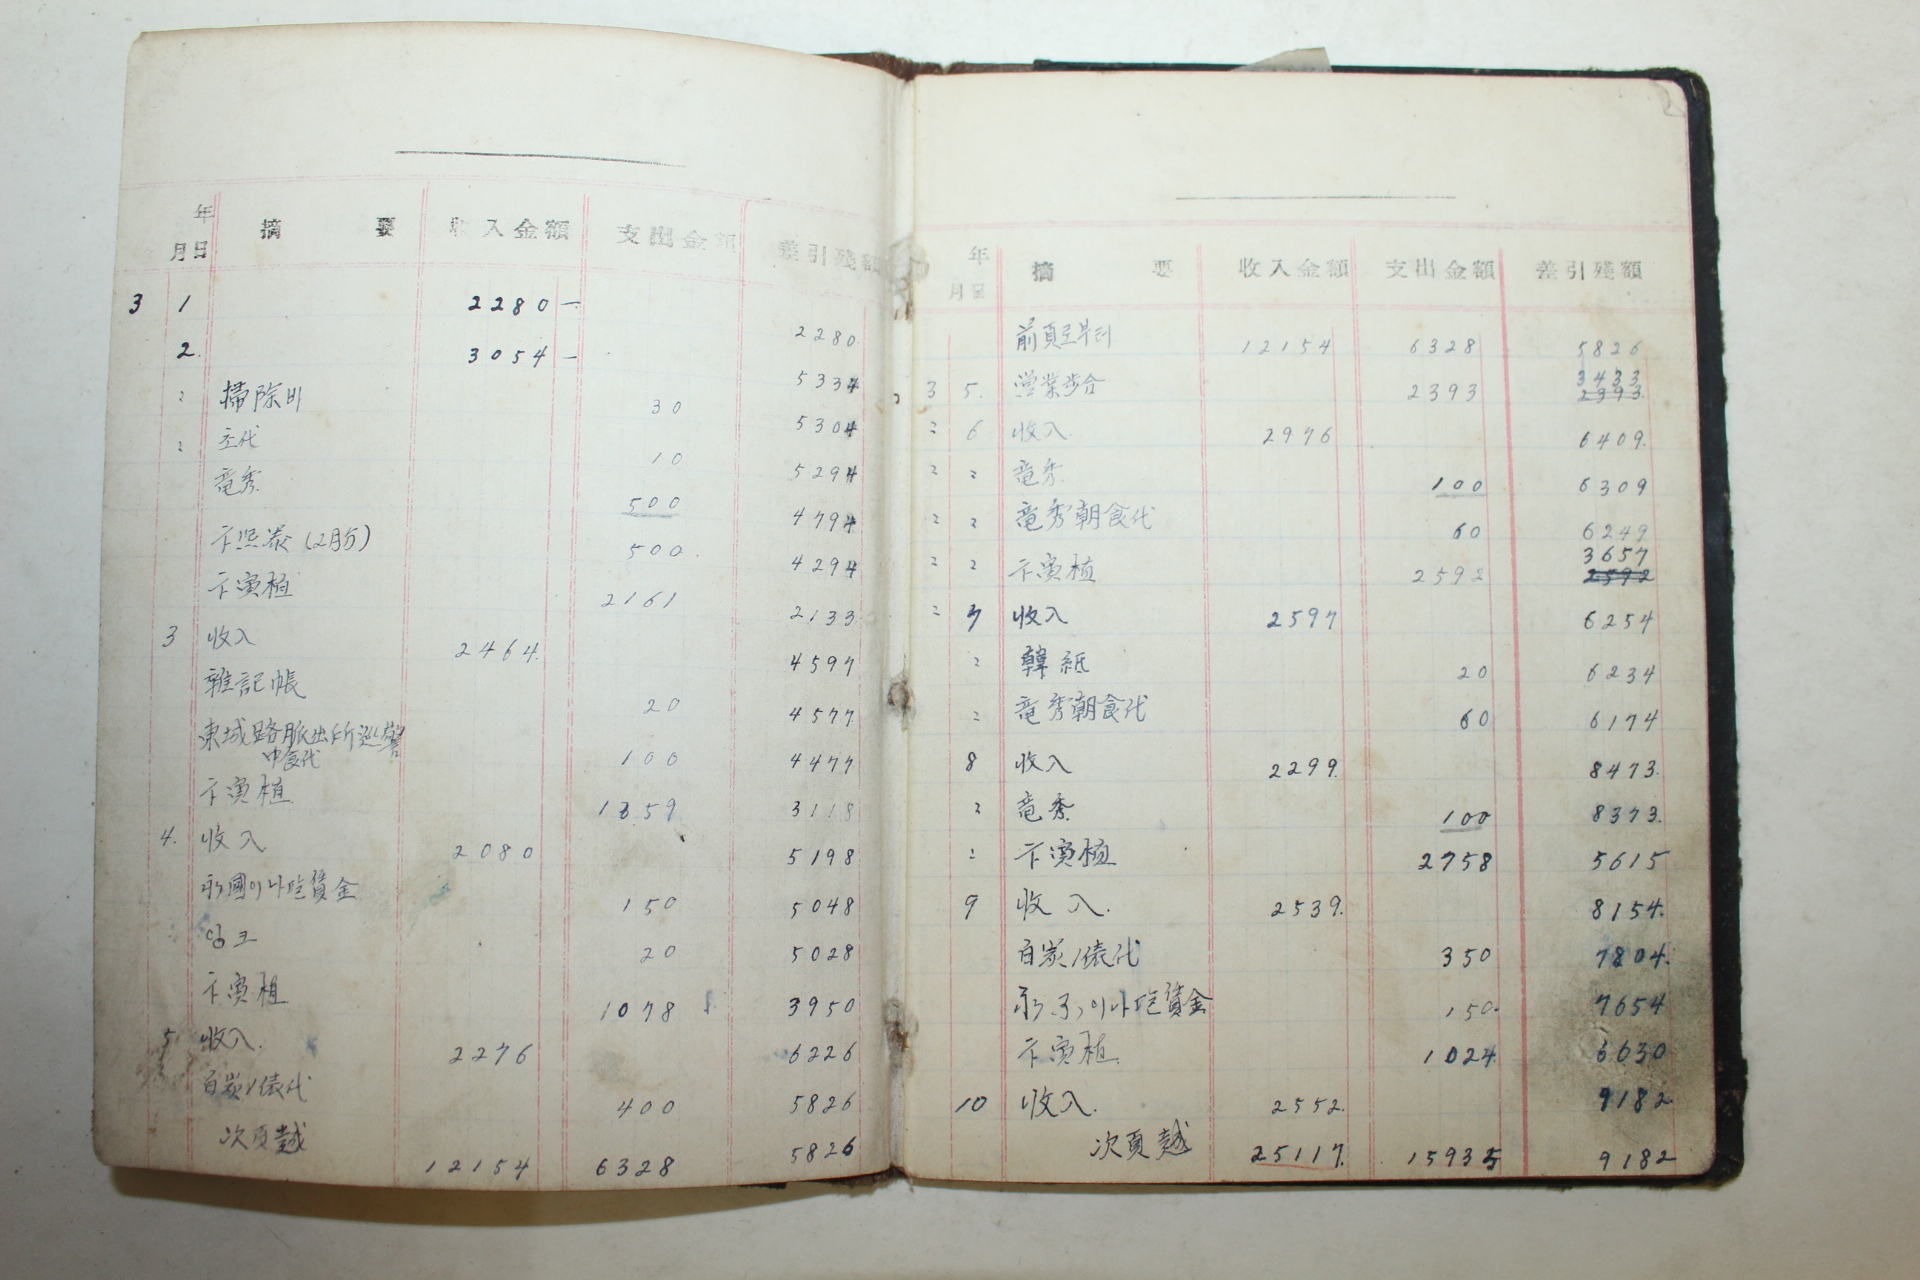 年
月日 摘要 收入金額 支出金額 差引残額
3 1 2280— 2280
2. 3054— 5334
〃 掃除비 30 5304
〃 代 10 5294
竜秀 500 4794
卞 (2月分) 500. 4294
卞濱植 2161 2133
3 收入 2464. 4597
雜記帳 20 4577
東城路派出所巡警
中食代 100 4477
卞濱植 1359 3118
4. 收入 2080 5198
永國이나 賃金 150 5048
잉크 20 5028
卞濱植 1078 3950
5 收入. 2276 6226
白炭1俵代 400 5826
次頁越 12154 6328 5826
年
月日 摘要 收入金額 支出金額 差引残額
前頁로부터 12154 6328 5826
3 5. 営業步合 2393 3433
2393
〃 6 收入. 2976 6409.
〃 〃 竜秀. 100 6309
〃 〃 竜秀朝食代 60 6249
〃 〃 卞濱植 2592 3657
2592
〃 7 收入 2597 6254
〃 韓紙 20 6234
〃 竜秀朝食代 60 6174
8 收入 2299. 8473.
〃 竜秀. 100 8373.
〃 卞濱植 2758 5615
9 收入. 2539. 8154.
白炭1俵代 350 7804.
이나 賃金 150. 7654
卞濱植. 1024. 6630
10 收入. 2552. 9182
次頁越 25117. 15935 9182